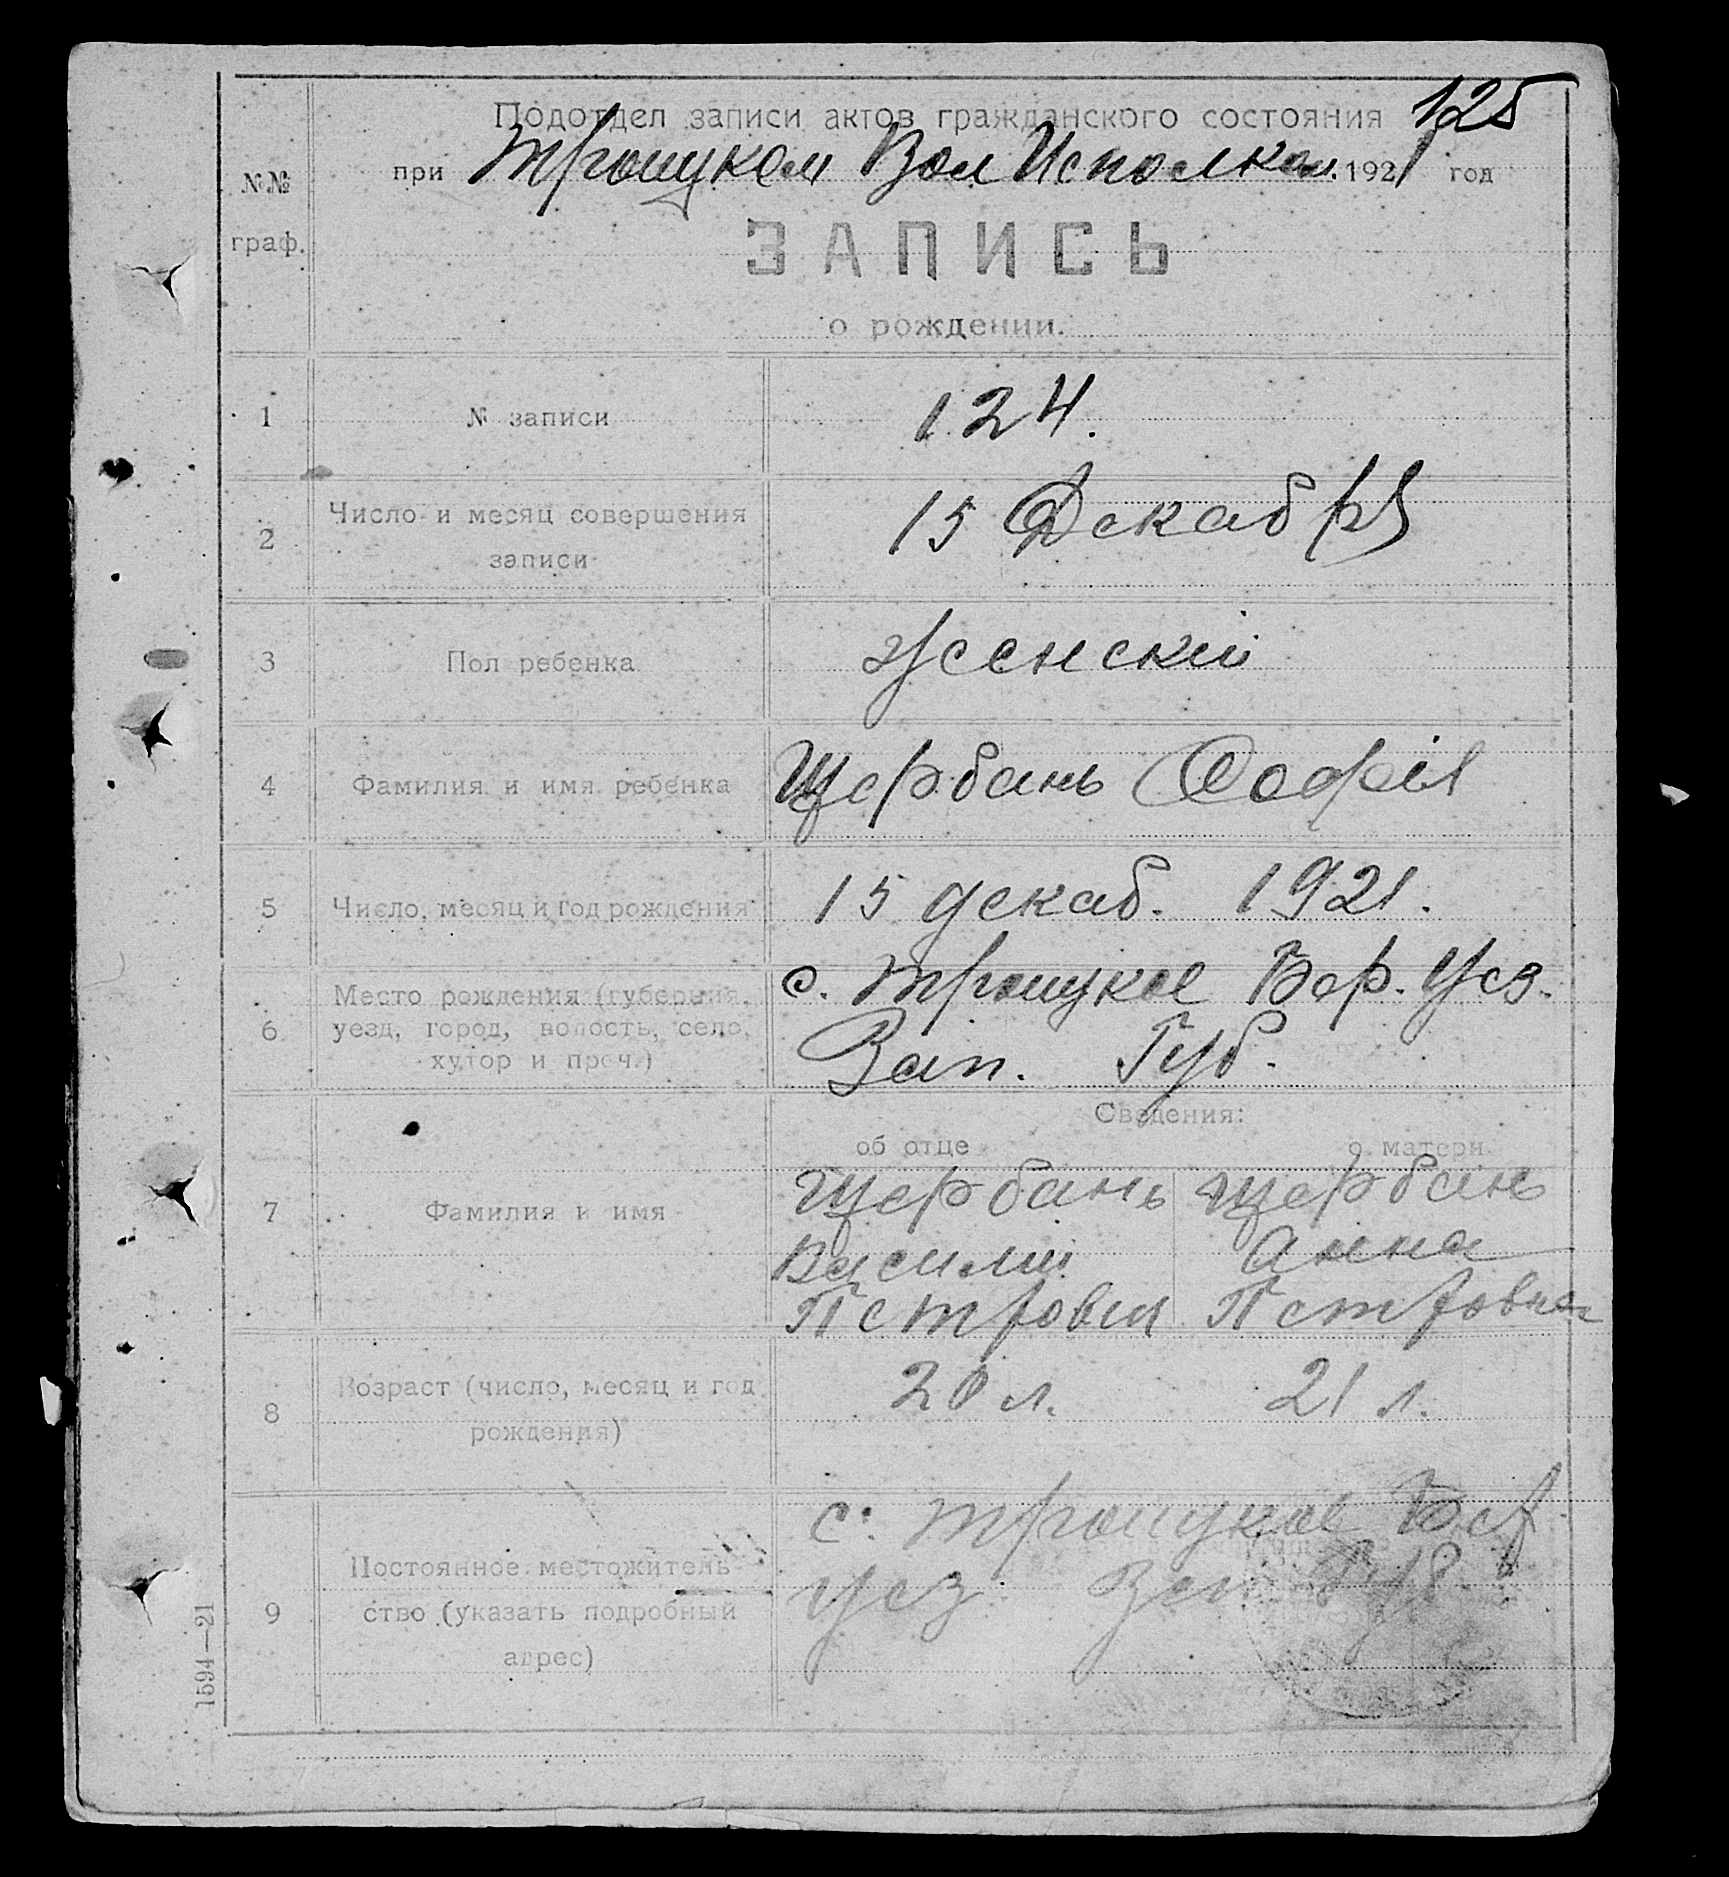 125
Подотдел записи актов гражданского состояния
при Троицком Вол Исполком. 1921 год
№№ граф.
ЗАПИСЬ
о рождении.
1 № записи 124.
2 Число и месяц совершения записи 15 Декабря
3 Пол ребенка женский
4 Фамилия и имя ребенка Щербань Софія
5 Число, месяц и год рождения 15 декаб. 1921.
6 Место рождения (губерния, уезд, город, волость, село, хутор и проч.) с. Троицкое Бер. Уез.
Зап. Губ.
Сведения:
об отце о матери
7 Фамилия и имя Щербань Щербань
Василий Анна
Петрович Петровна
8 Возраст (число, месяц и год рождения) 20 л. 21 л.
9 Постоянное местожительство (указать подробный адрес) с. Троицкое Бер
уез Зап Губ
1594—21